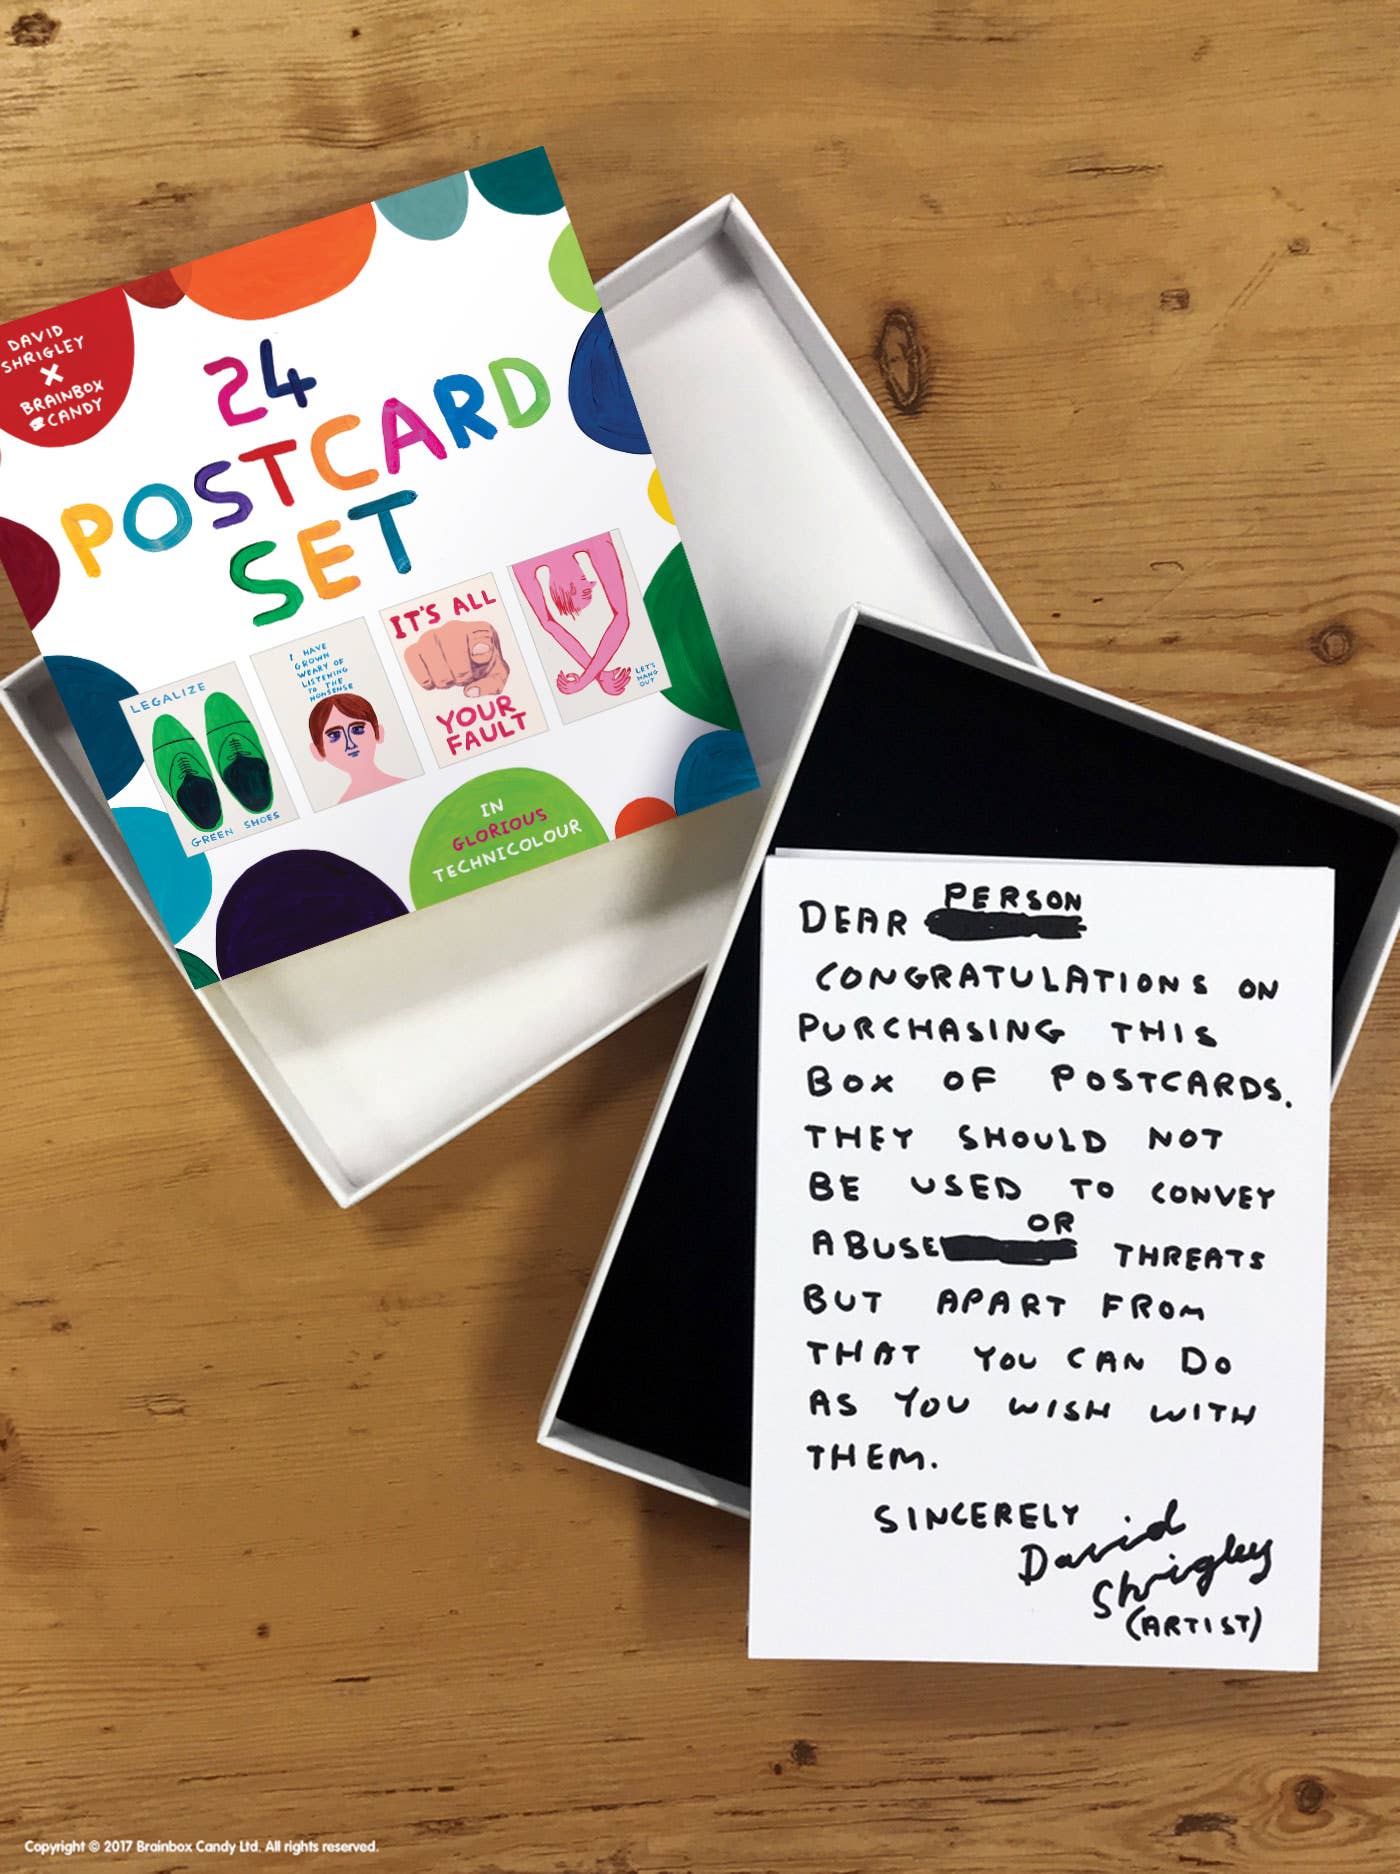 DAVID
SHRIGLEY
X
BRAINBOX
CANDY
24
POSTCARD
SET
LEGALIZE
GREEN SHOES
I HAVE
GROWN
WEARY OF
LISTENING
TO THE
NONSENSE
IT'S ALL
YOUR
FAULT
LET'S
HANG
OUT
IN
GLORIOUS
TECHNICOLOUR
DEAR PERSON
CONGRATULATIONS ON
PURCHASING THIS
BOX OF POSTCARDS.
THEY SHOULD NOT
BE USED TO CONVEY
ABUSE OR THREATS
BUT APART FROM
THAT YOU CAN DO
AS YOU WISH WITH
THEM.
SINCERELY
David
Shrigley
(ARTIST)
Copyright © 2017 Brainbox Candy Ltd. All rights reserved.